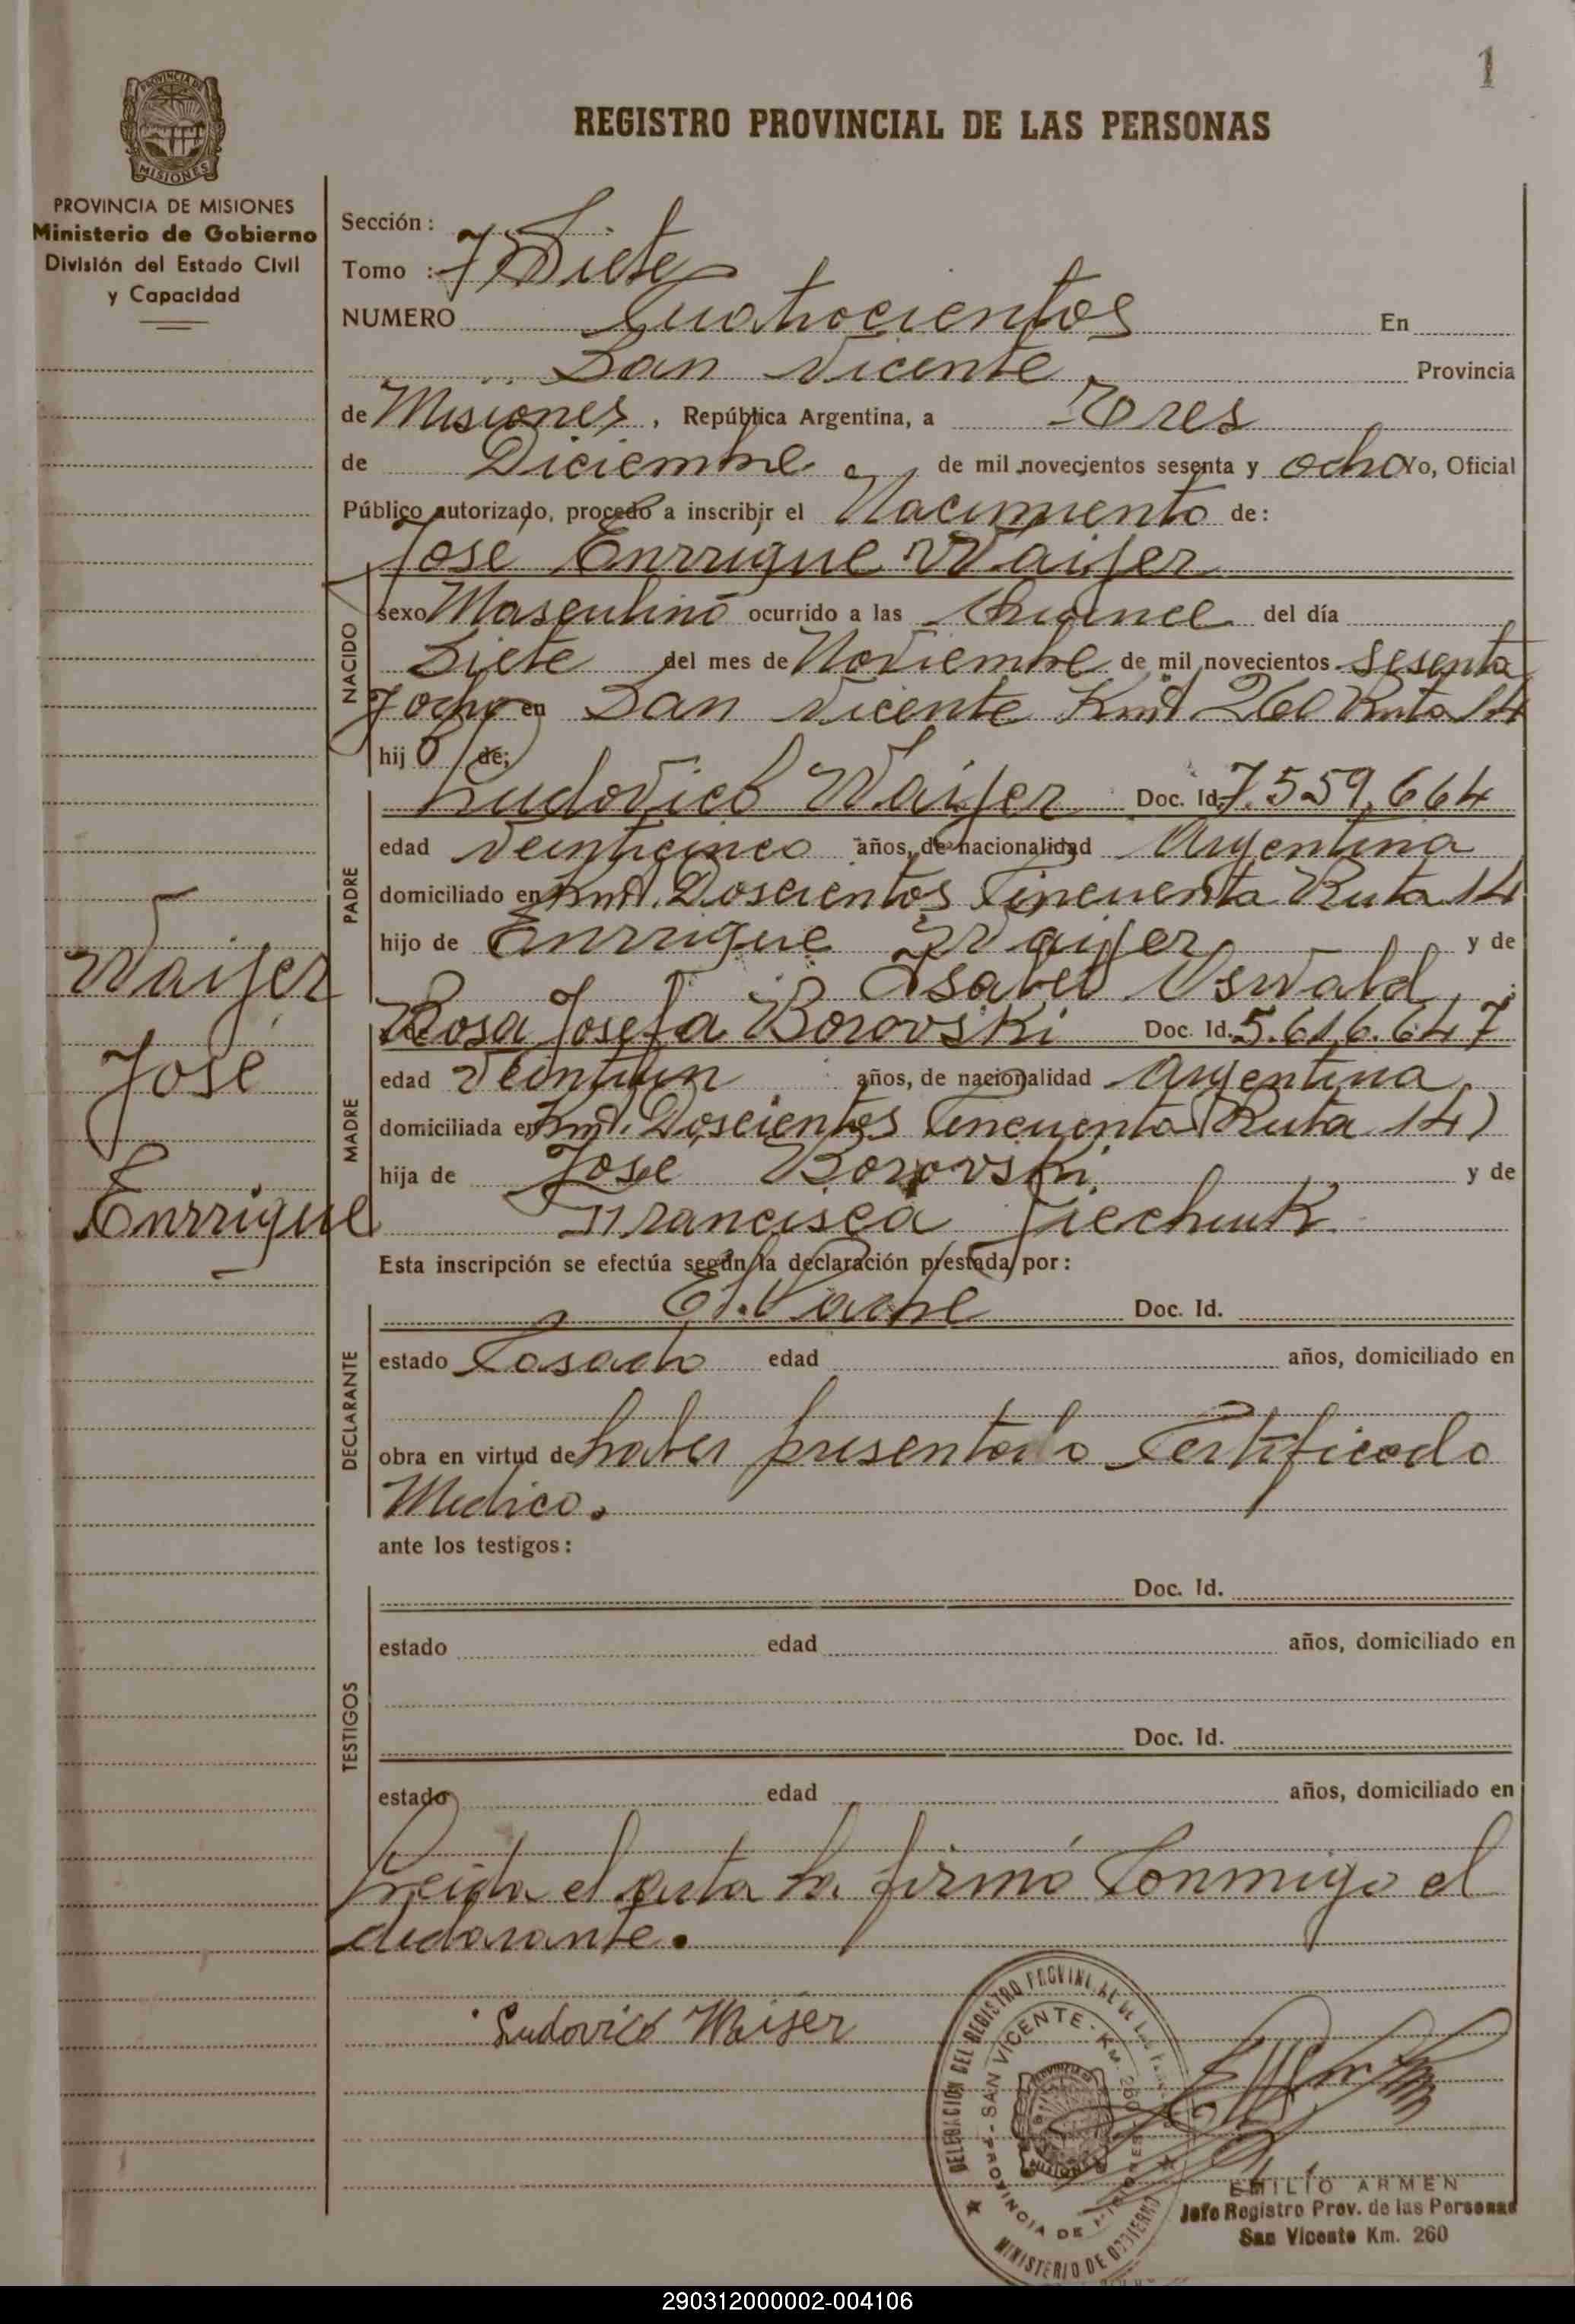 1
PROVINCIA DE
MISIONES
REGISTRO PROVINCIAL DE LAS PERSONAS
PROVINCIA DE MISIONES
Ministerio de Gobierno
División del Estado Civil
y Capacidad
Sección :
Tomo : 7 Siete
NUMERO Cuatrocientos En
San Vicente Provincia
de Misiones, República Argentina, a Tres
de Diciembre de mil novecientos sesenta y ocho Yo, Oficial
Público autorizado, procedo a inscribir el Nacimiento de:
José Enrrique Waiser
NACIDO
sexo Masculino ocurrido a las quince del día
Siete del mes de Noviembre de mil novecientos sesenta
y ocho en San Vicente Kmt 260 Ruta 14
hijo de:
PADRE
Ludovico Waiser Doc. Id. 7.559.664
edad Veinticinco años, de nacionalidad Argentina
domiciliado en Kmt. Doscientos Cincuenta Ruta 14
hijo de Enrrique Waiser y de
Isabel Oswald
MADRE
Rosa Josefa Borovski Doc. Id. 5.616.647
edad Veintiun años, de nacionalidad Argentina
domiciliada en Kmt. Doscientos Cincuenta (Ruta 14)
hija de José Borovski y de
Francisca
Waiser
José
Enrrique
Esta inscripción se efectúa según la declaración prestada por:
DECLARANTE
El Padre Doc. Id.
estado Casado edad años, domiciliado en
obra en virtud de haber presentado Certificado
Medico.
ante los testigos:
TESTIGOS
Doc. Id.
estado edad años, domiciliado en
Doc. Id.
estado edad años, domiciliado en
Leida el acta la firmó conmigo el
declarante.
Ludovico Waiser
DELEGACION DEL REGISTRO PROVINCIAL DE LAS
SAN VICENTE - KM. 260
PROVINCIA DE MISIONES
MINISTERIO DE GOBIERNO
EMILIO ARMEN
Jefe Registro Prov. de las Personas
San Vicente Km. 260
290312000002-004106